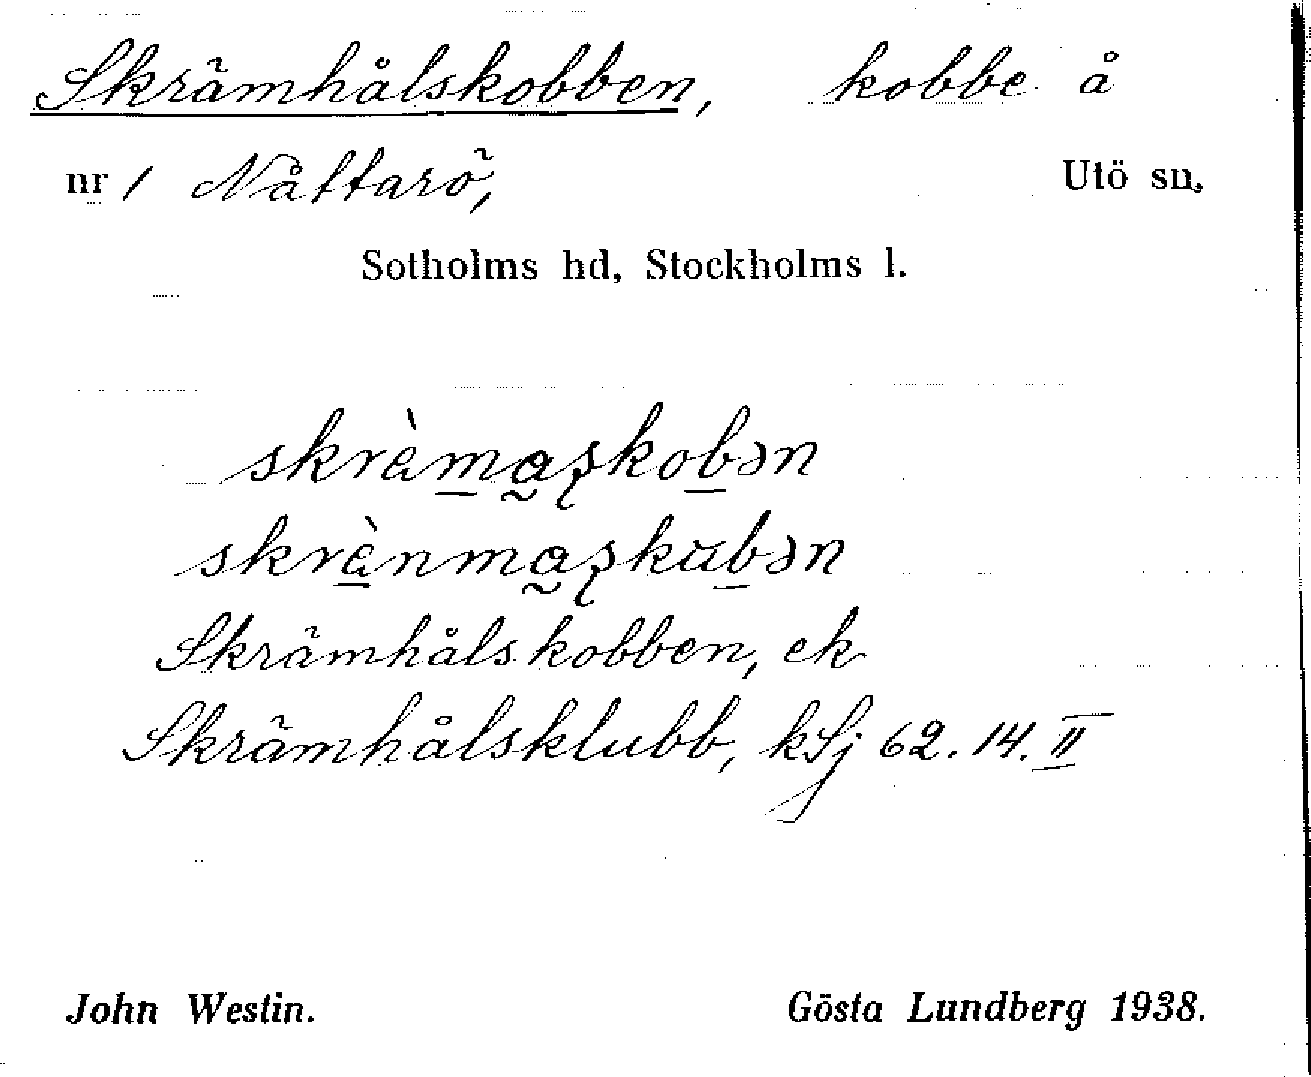 Skrämhålskobben, kobbe å
nr 1 Nåttarö, Utö sn.
Sotholms hd, Stockholms l.
skrèmaʂkobən
skrènmaʂkubən
Skrämhålskobben, ek
Skrämhålsklubb, kSj 62.14.II
John Westin. Gösta Lundberg 1938.